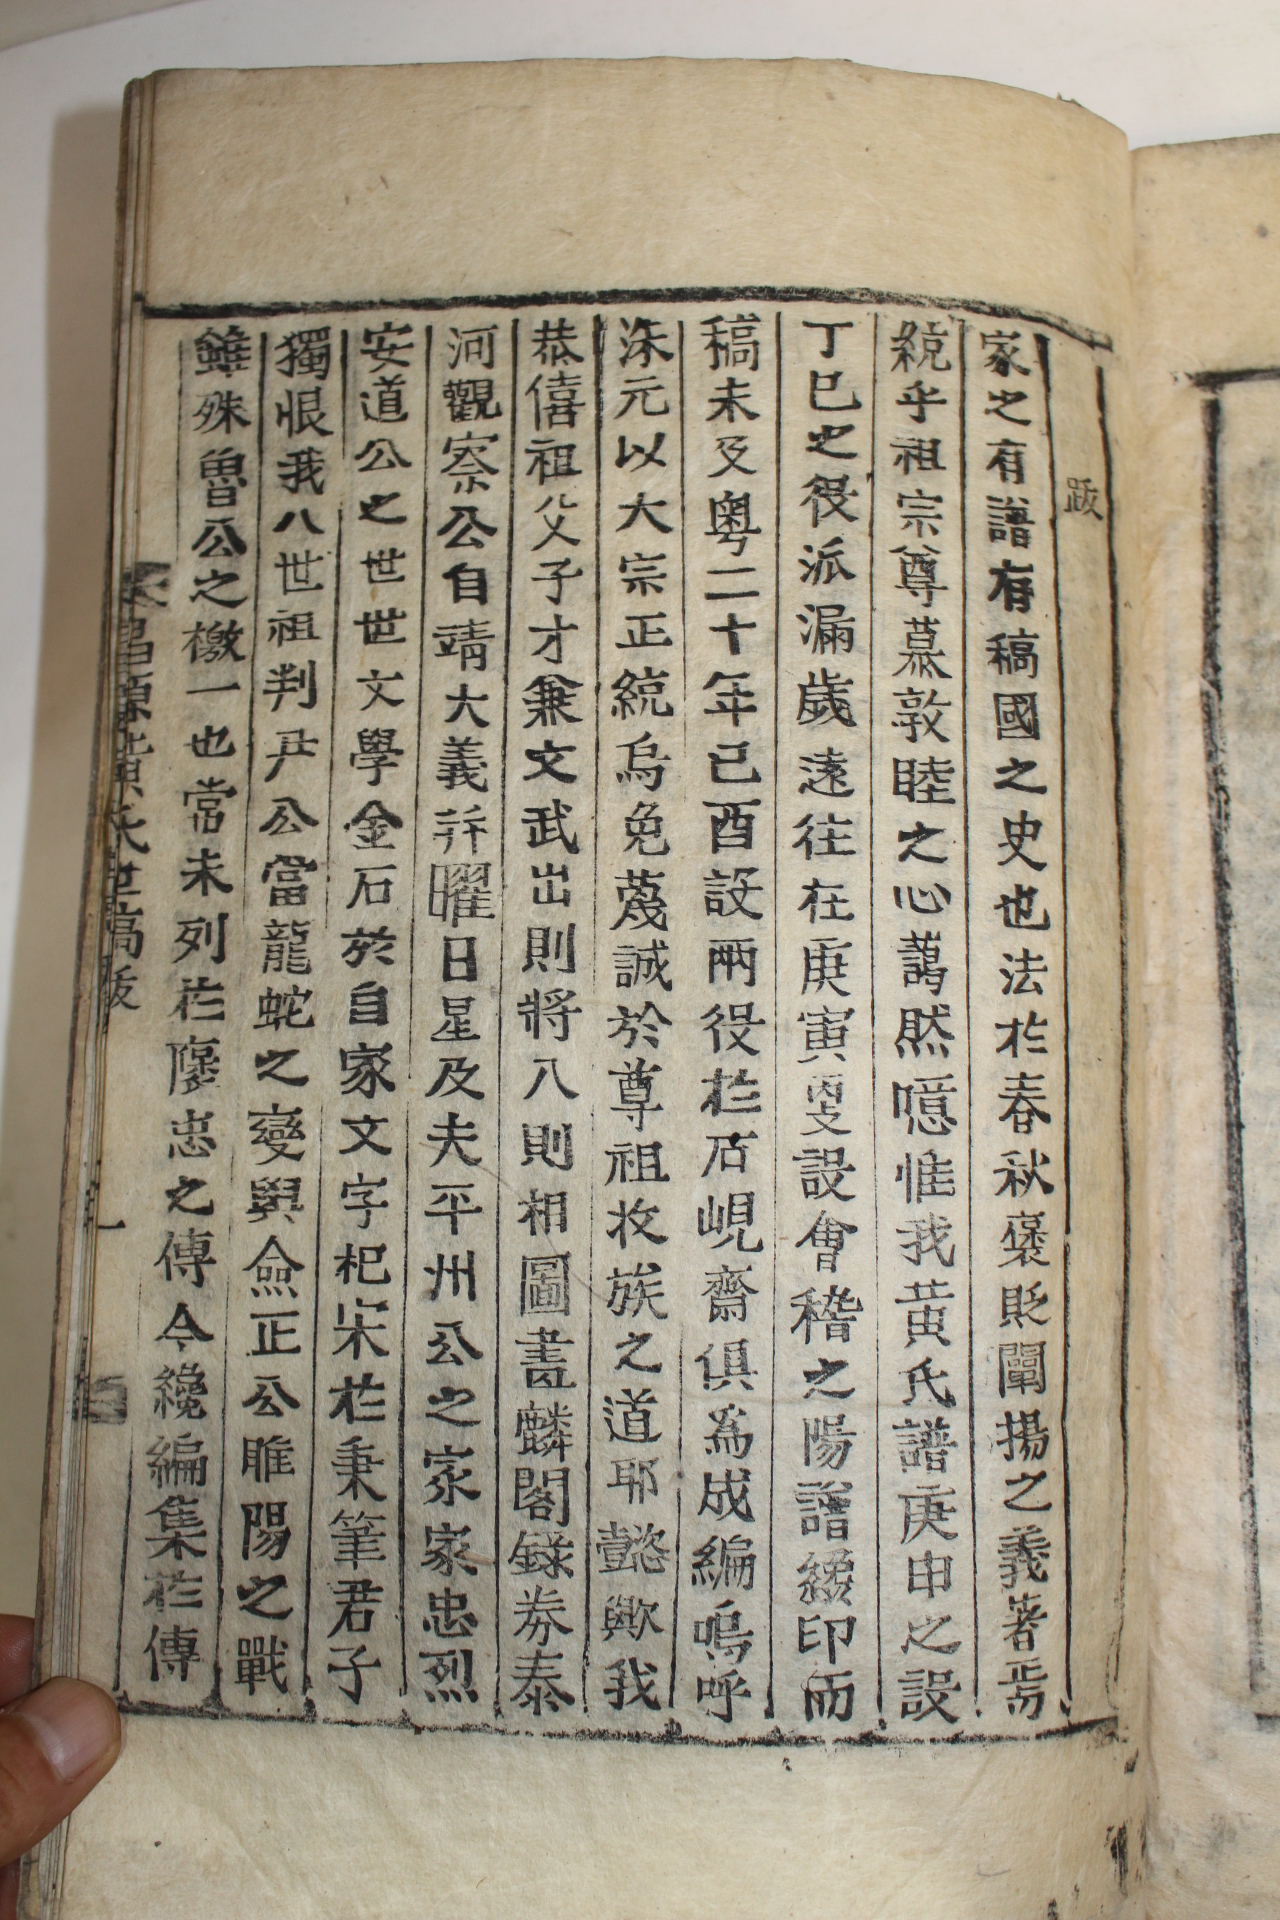 跋
家之有譜有稿國之史也法於春秋褒貶闡揚之義著焉
統乎祖宗尊慕敦睦之心藹然噫惟我黃氏譜庚申之設
丁巳之役派漏歲遠往在庚寅丙文設會稽之陽譜綴印而
稿未及粤二十年己酉設兩役於居峴齋俱爲成編嗚呼
洙元以大宗正統烏免蔑誠於尊祖收族之道耶懿歟我
恭僖祖父子才兼文武出則將入則相圖畫麟閣錄券泰
河觀察公自靖大義幷曜日星及夫平州公之家家忠烈
安道公之世世文學金石於自家文字杞宋於秉筆君子
獨恨我八世祖判尹公當龍蛇之變與僉正公睢陽之戰
雖殊魯公之檄一也常未列於褒忠之傳今纔編集於傳
昌原黃氏世稿跋
一